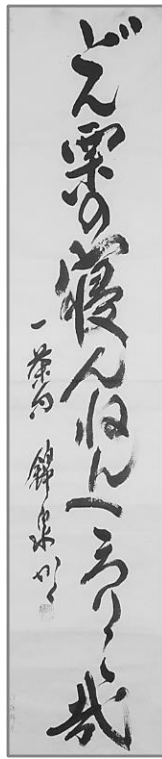 どん栗の寝んねんころり〱哉
一茶句 錦泉かく